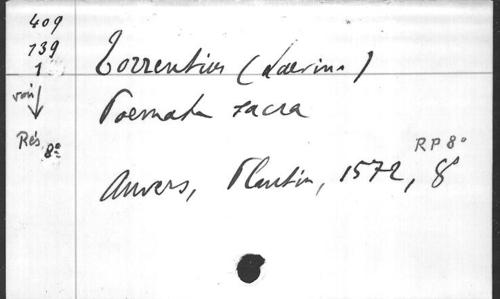 409
139
1
voir
Rés. 8º
Torrentius (Laevinus)
Poemata sacra
RP 8º
Anvers, Plantin, 1572, 8º